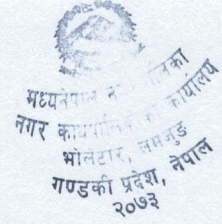 मध्यनेपाल नगरपालिका
नगर कार्यपालिकाको कार्यालय
भोलेटार, लमजुङ
गण्डकी प्रदेश, नेपाल
२०७३